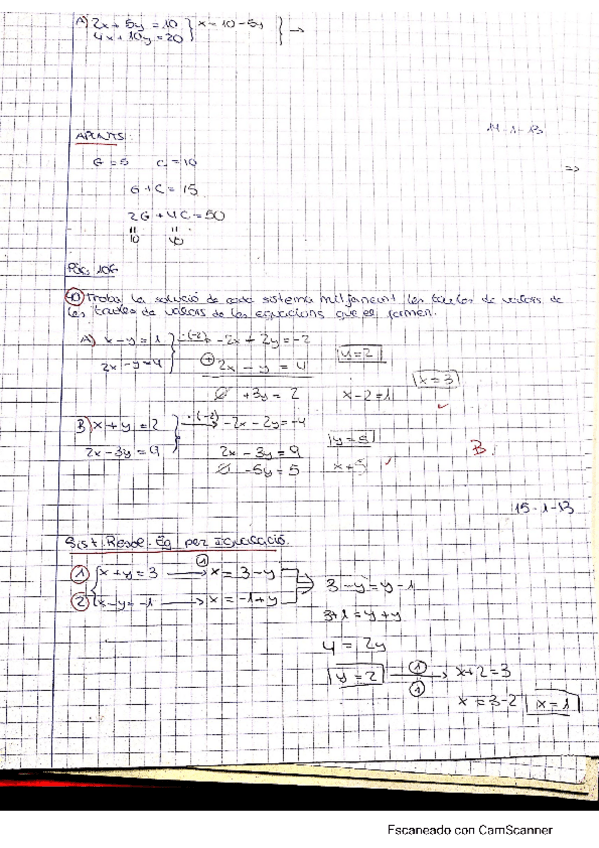 A) 2x + 5y = 10 } x = 10 - 5y } →
4x + 10y = 20
14-1-13
APUNTS:
G = 5 C = 10 ⇒
G + C = 15
2G + 4C = 50
10 40
Pàg. 106
40 Troba la solució de cada sistema mitjançant les taules de valors de
les taules de valors de les equacions que el formen.
A) x - y = 1 } ·(-2) → -2x + 2y = -2
2x - y = 4 + 2x - y = 4 y = 2
0 + 3y = 2 x - 2 = 1 x = 3
B) x + y = 2 } ·(-2) → -2x - 2y = -4
2x - 3y = 9 2x - 3y = 9 y = 5
0 - 5y = 5 x + 5
B.
15-1-13
Sist. Resol. Eq. per Igualació.
1 x + y = 3 → 1 x = 3 - y ⇒ 3 - y = y - 1
2 x - y = -1 → x = -1 + y
3 + 1 = y + y
4 = 2y
y = 2 1 1 → x + 2 = 3
x = 3 - 2 x = 1
Escaneado con CamScanner